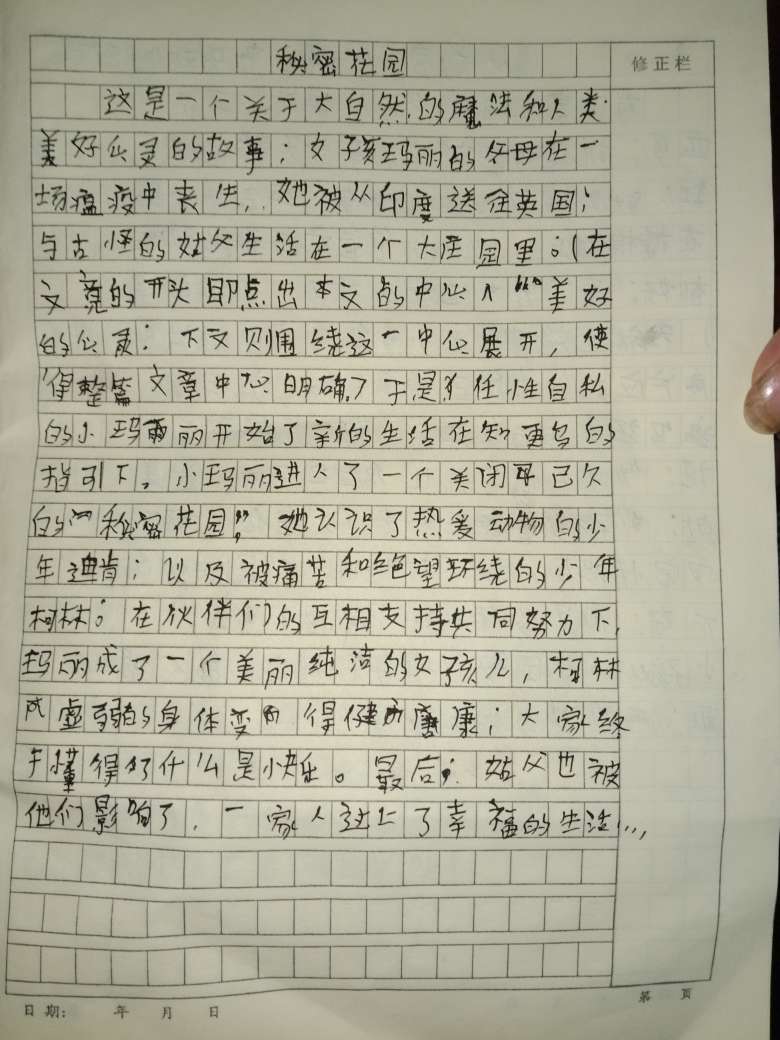 秘密花园
修正栏
这是一个关于大自然的魔法和人类
美好心灵的故事；女孩玛丽的父母在一
场瘟疫中丧生，她被从印度送往英国；
与古怪的姑父生活在一个大庄园里。（在
文章的开头即点出本文的中心“美好
的心灵；下文则围绕这一中心展开，使
得整篇文章中心明确。）于是任性自私
的小玛丽开始了新的生活在知更鸟的
指引下，小玛丽进入了一个关闭已久
的“秘密花园”，她认识了热爱动物的少
年迪肯；以及被痛苦和绝望环绕的少年
柯林。在伙伴们的互相支持共同努力下，
玛丽成了一个美丽纯洁的女孩儿，柯林
虚弱的身体变得健康；大家终
于懂得了什么是快乐。最后；姑父也被
他们影响了，一家人过上了幸福的生活…
第 页
日期： 年 月 日